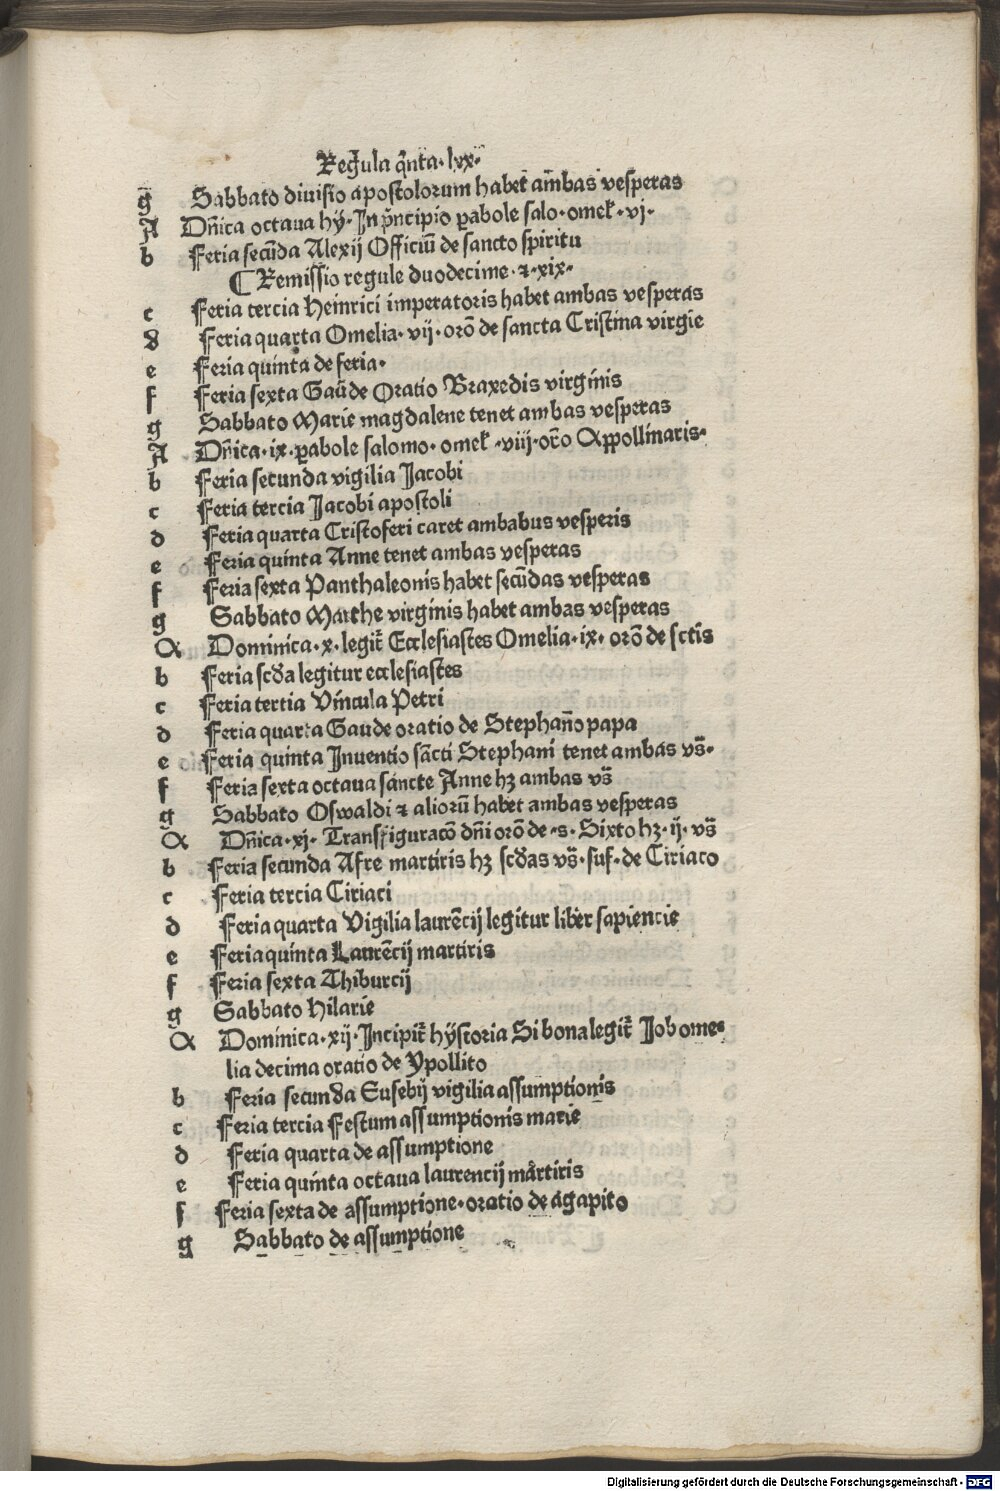 Regula q̄nta · lxx·
g Sabbato diuisio apostolorum habet ambas vesperas
A Dn̄ica octaua hy· In pͥncipio ꝑabole salo·omel̄·vj·
b Feria secūda Alexij Officiū de sancto spiritu
¶ Remissio regule duodecime·⁊·xix·
c Feria tercia Heinrici imperatoris habet ambas vesperas
d Feria quarta Omelia·vij·orō de sancta Cristina virgie
e Feria quinta de feria·
f Feria sexta Gaūde Oratio Braxedis virginis
g Sabbato Marie magdalene tenet ambas vesperas
A Dn̄ica·ix·ꝑabole salomo·omel̄·viij·or̄o Appollinaris·
b Feria secunda vigilia Jacobi
c Feria tercia Jacobi apostoli
d Feria quarta Cristoferi caret ambabus vesperis
e Feria quinta Anne tenet ambas vesperas
f Feria sexta Panthaleonis habet secūdas vesperas
g Sabbato Marthe virginis habet ambas vesperas
A Dominica·x·legit̄ Ecclesiastes Omelia·ix·orō de sctīs
b Feria scd̄a legitur ecclesiastes
c Feria tertia Vincula Petri
d Feria quarta Gaude oratio de Stephan̄o papa
e Feria quinta Inuentio sācti Stephani tenet ambas vs̄·
f Feria sexta octaua sancte Anne hꝫ ambas vs̄
g Sabbato Oswaldi ⁊ aliorū habet ambas vesperas
A Dn̄ica·xj· Transfiguracō dn̄i orō de·s·Sixto hꝫ·ij·vs̄
b Feria secunda Afre martiris hꝫ scd̄as vs̄·suf·de Ciriaco
c Feria tercia Ciriaci
d Feria quarta Vigilia laurēcij legitur liber sapiencie
e Feria quinta Laurēcij martiris
f Feria sexta Thiburcij
g Sabbato Hilarie
A Dominica·xij·Incipit̄ hystoria Si bona legit̄ Job ome⸗
lia decima oratio de Ypollito
b Feria secunda Eusebij vigilia assumptionis
c Feria tercia Festum assumptionis marie
d Feria quarta de assumptione
e Feria quinta octaua laurencij martiris
f Feria sexta de assumptione·oratio de agapito
g Sabbato de assumptione
Digitalisierung gefördert durch die Deutsche Forschungsgemeinschaft - DFG